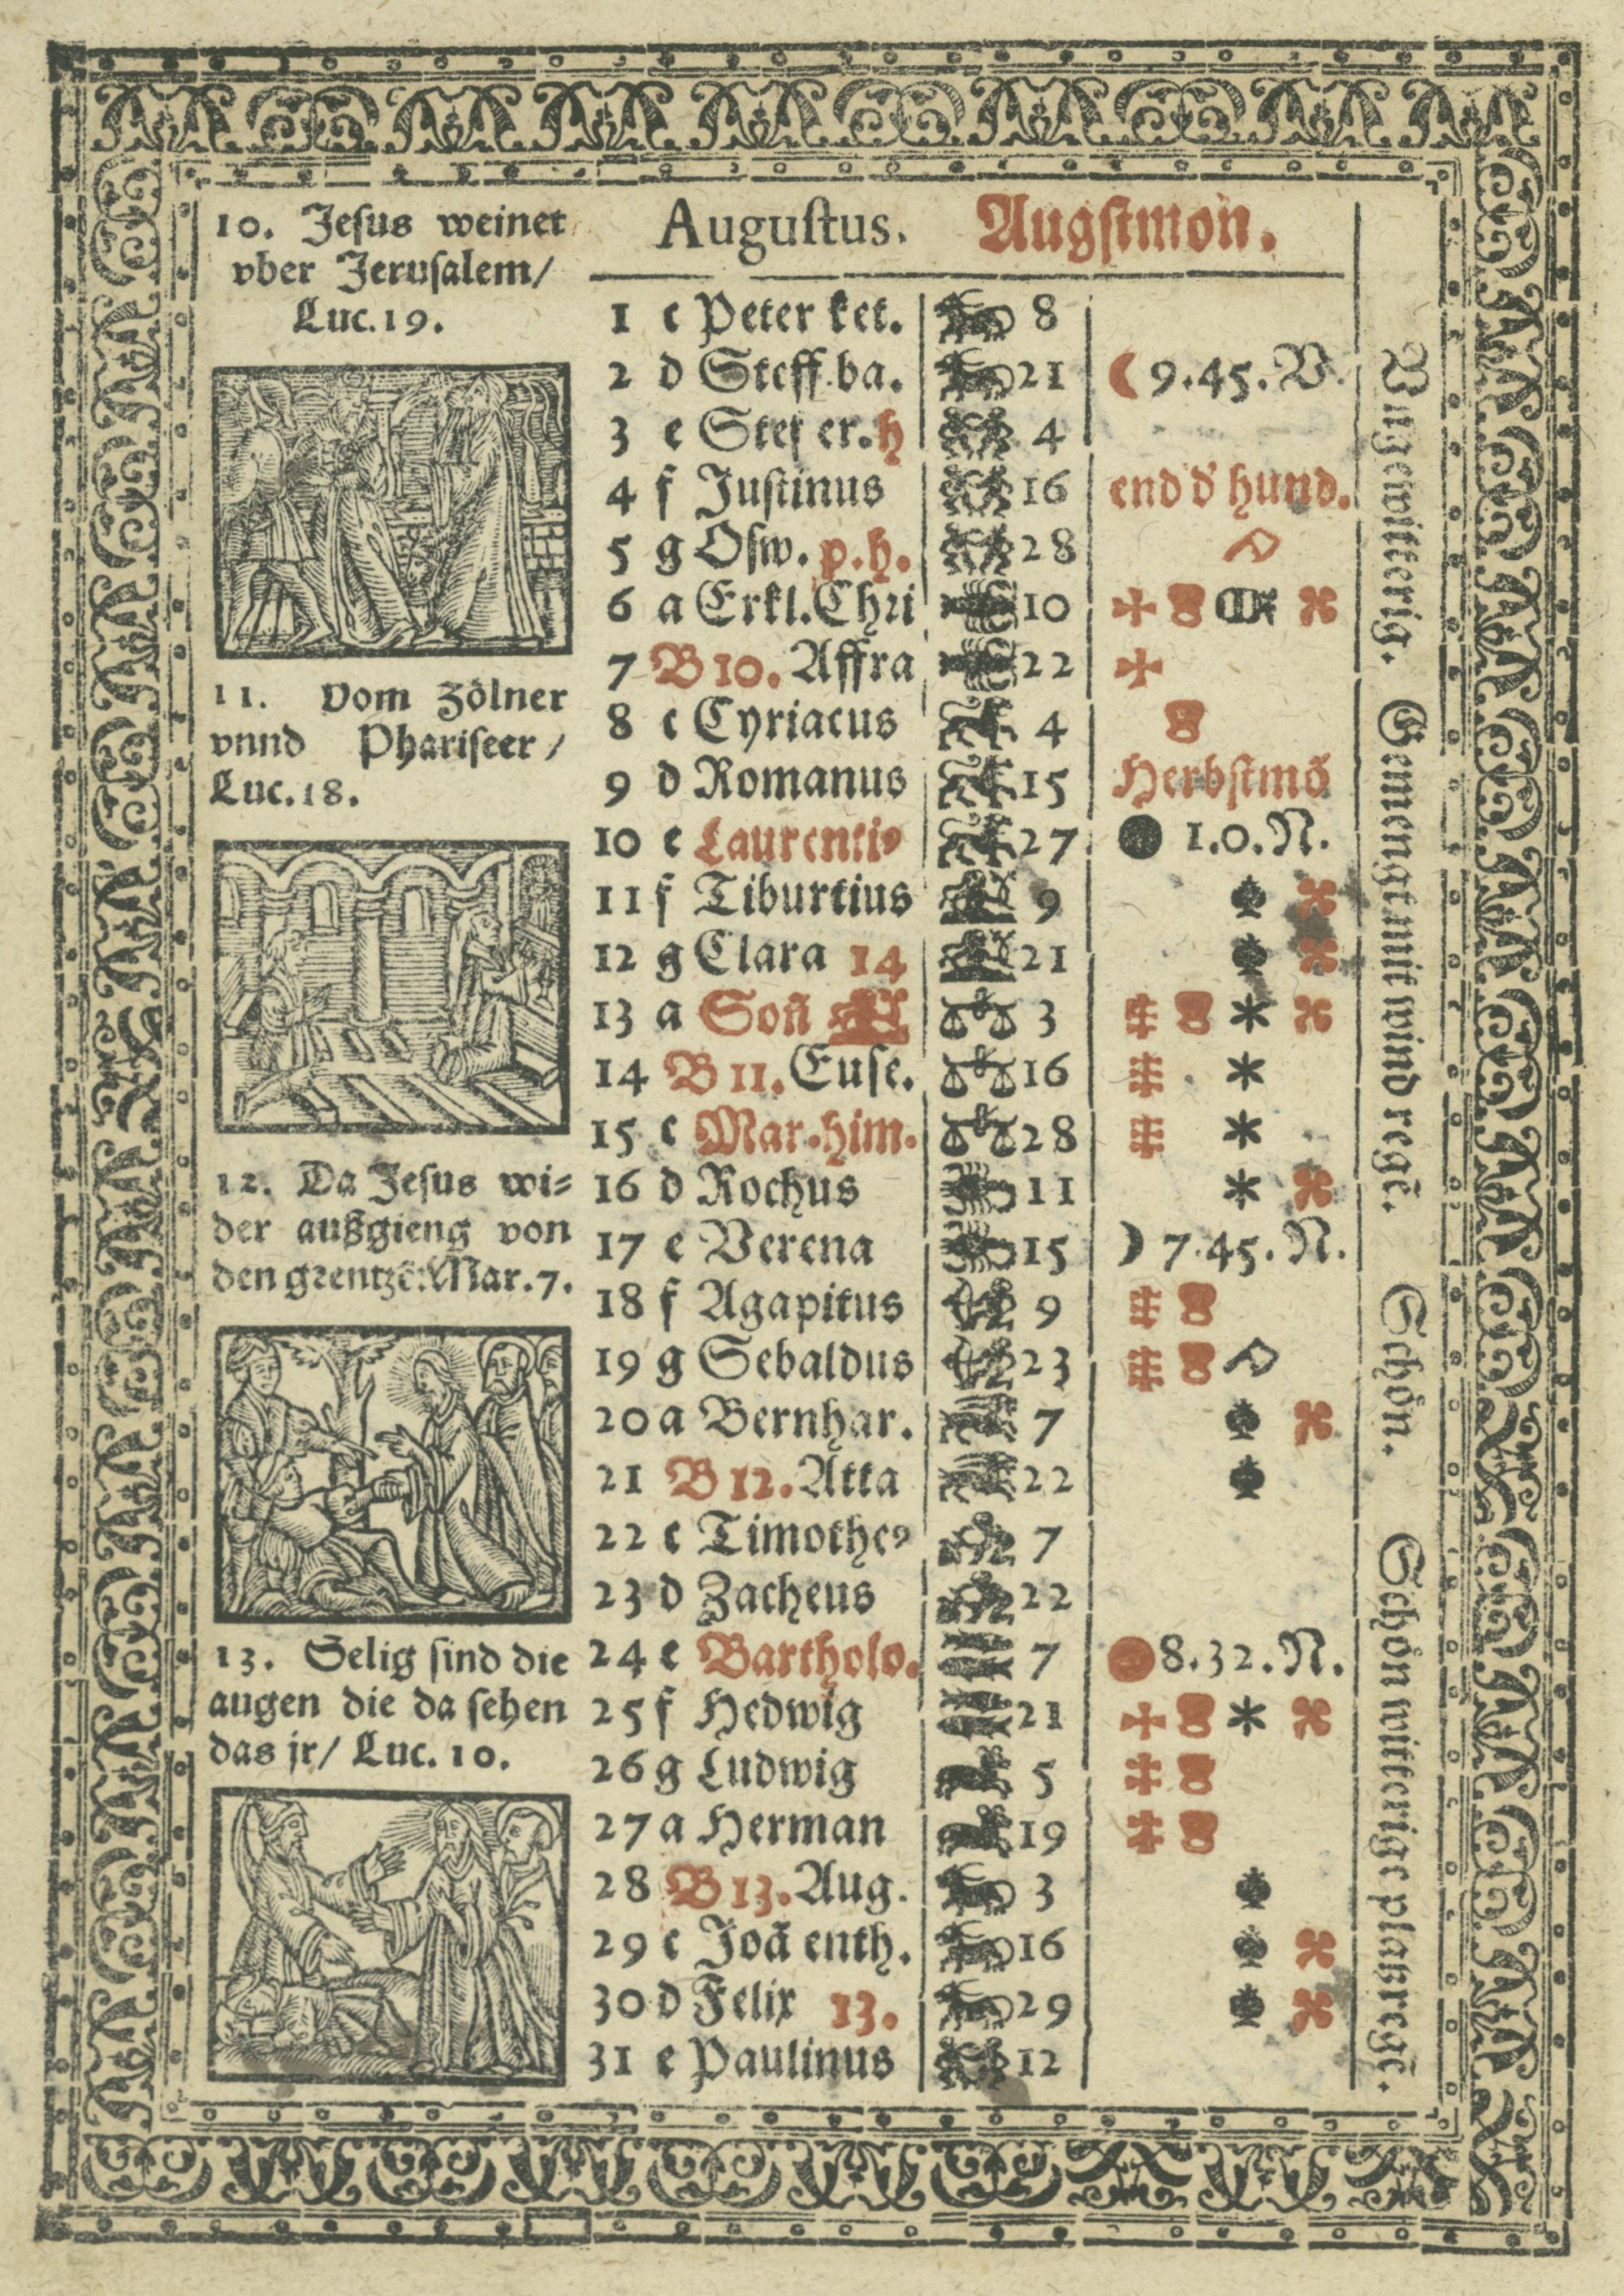 10. Jesus weinet
vber Jerusalem/
Luc. 19.
11. Vom Zölner
vnnd Phariseer/
Luc. 18.
12. Da Jesus wi-
der außgieng von
den grentzē: Mar. 7.
13. Selig sind die
augen die da sehen
das jr/ Luc. 10.
Augustus. Augstmon.
1 c Peter ket. 8
2 d Steff. ba. 21 9.45. V.
3 e Stef er. h 4
4 f Justinus 16 end d' hund.
5 g Osw. p. h. 28
6 a Erkl. Chri 10
7 B 10. Affra 22
8 c Cyriacus 4
9 d Romanus 15 Herbstmō
10 e Laurenti9 27 1.0. N.
11 f Tiburtius 9
12 g Clara 14 21
13 a Soñ 3
14 B 11. Euse. 16
15 c Mar. him. 28
16 d Rochus 11
17 e Verena 15 7.45. N.
18 f Agapitus 9
19 g Sebaldus 23
20 a Bernhar. 7
21 B 12. Atta 22
22 c Timothe9 7
23 d Zacheus 22
24 e Bartholo. 7 8.32. N.
25 f Hedwig 21
26 g Ludwig 5
27 a Herman 19
28 B 13. Aug. 3
29 c Joā enth. 16
30 d Felix 13. 29
31 e Paulinus 12
Vngewitterig. Gemengt mit wind regē. Schön. Schön witterige platzregē.